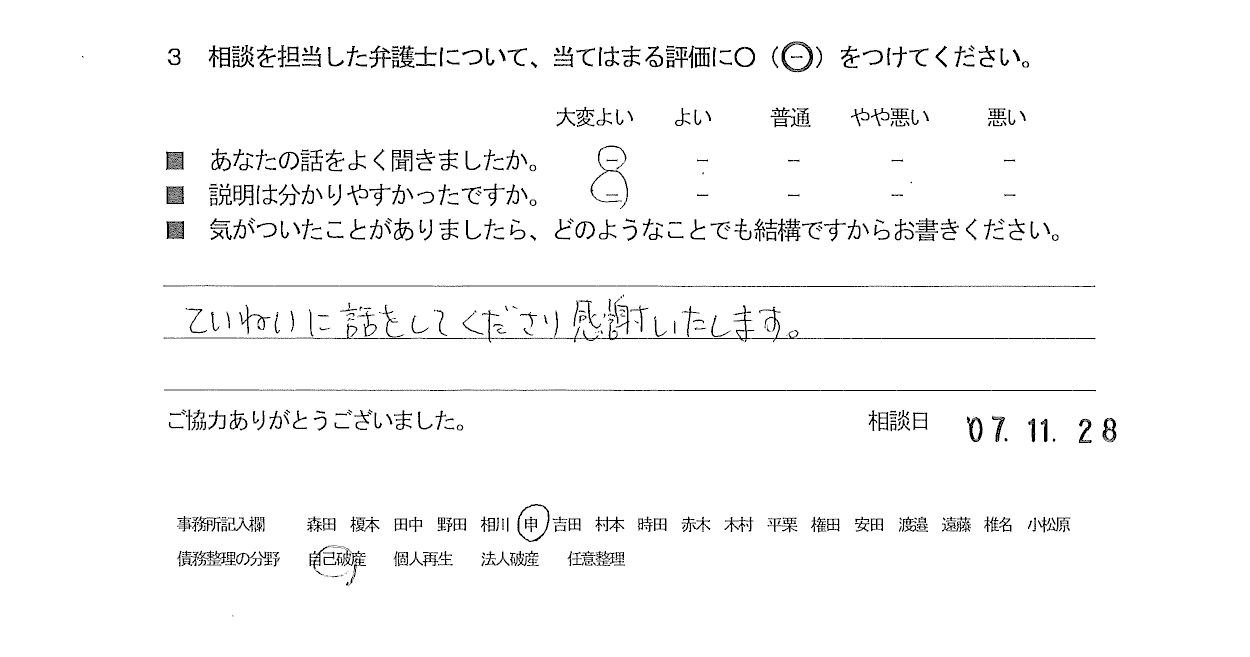 3 相談を担当した弁護士について、当てはまる評価に〇（㊀）をつけてください。
大変よい よい 普通 やや悪い 悪い
■ あなたの話をよく聞きましたか。 － － － － －
■ 説明は分かりやすかったですか。 － － － － －
■ 気がついたことがありましたら、どのようなことでも結構ですからお書きください。
ていねいに話をしてくださり感謝いたします。
ご協力ありがとうございました。 相談日 '07.11.28
事務所記入欄 森田 榎本 田中 野田 相川 申 吉田 村本 時田 赤木 木村 平栗 権田 安田 渡邉 遠藤 椎名 小松原
債務整理の分野 自己破産 個人再生 法人破産 任意整理